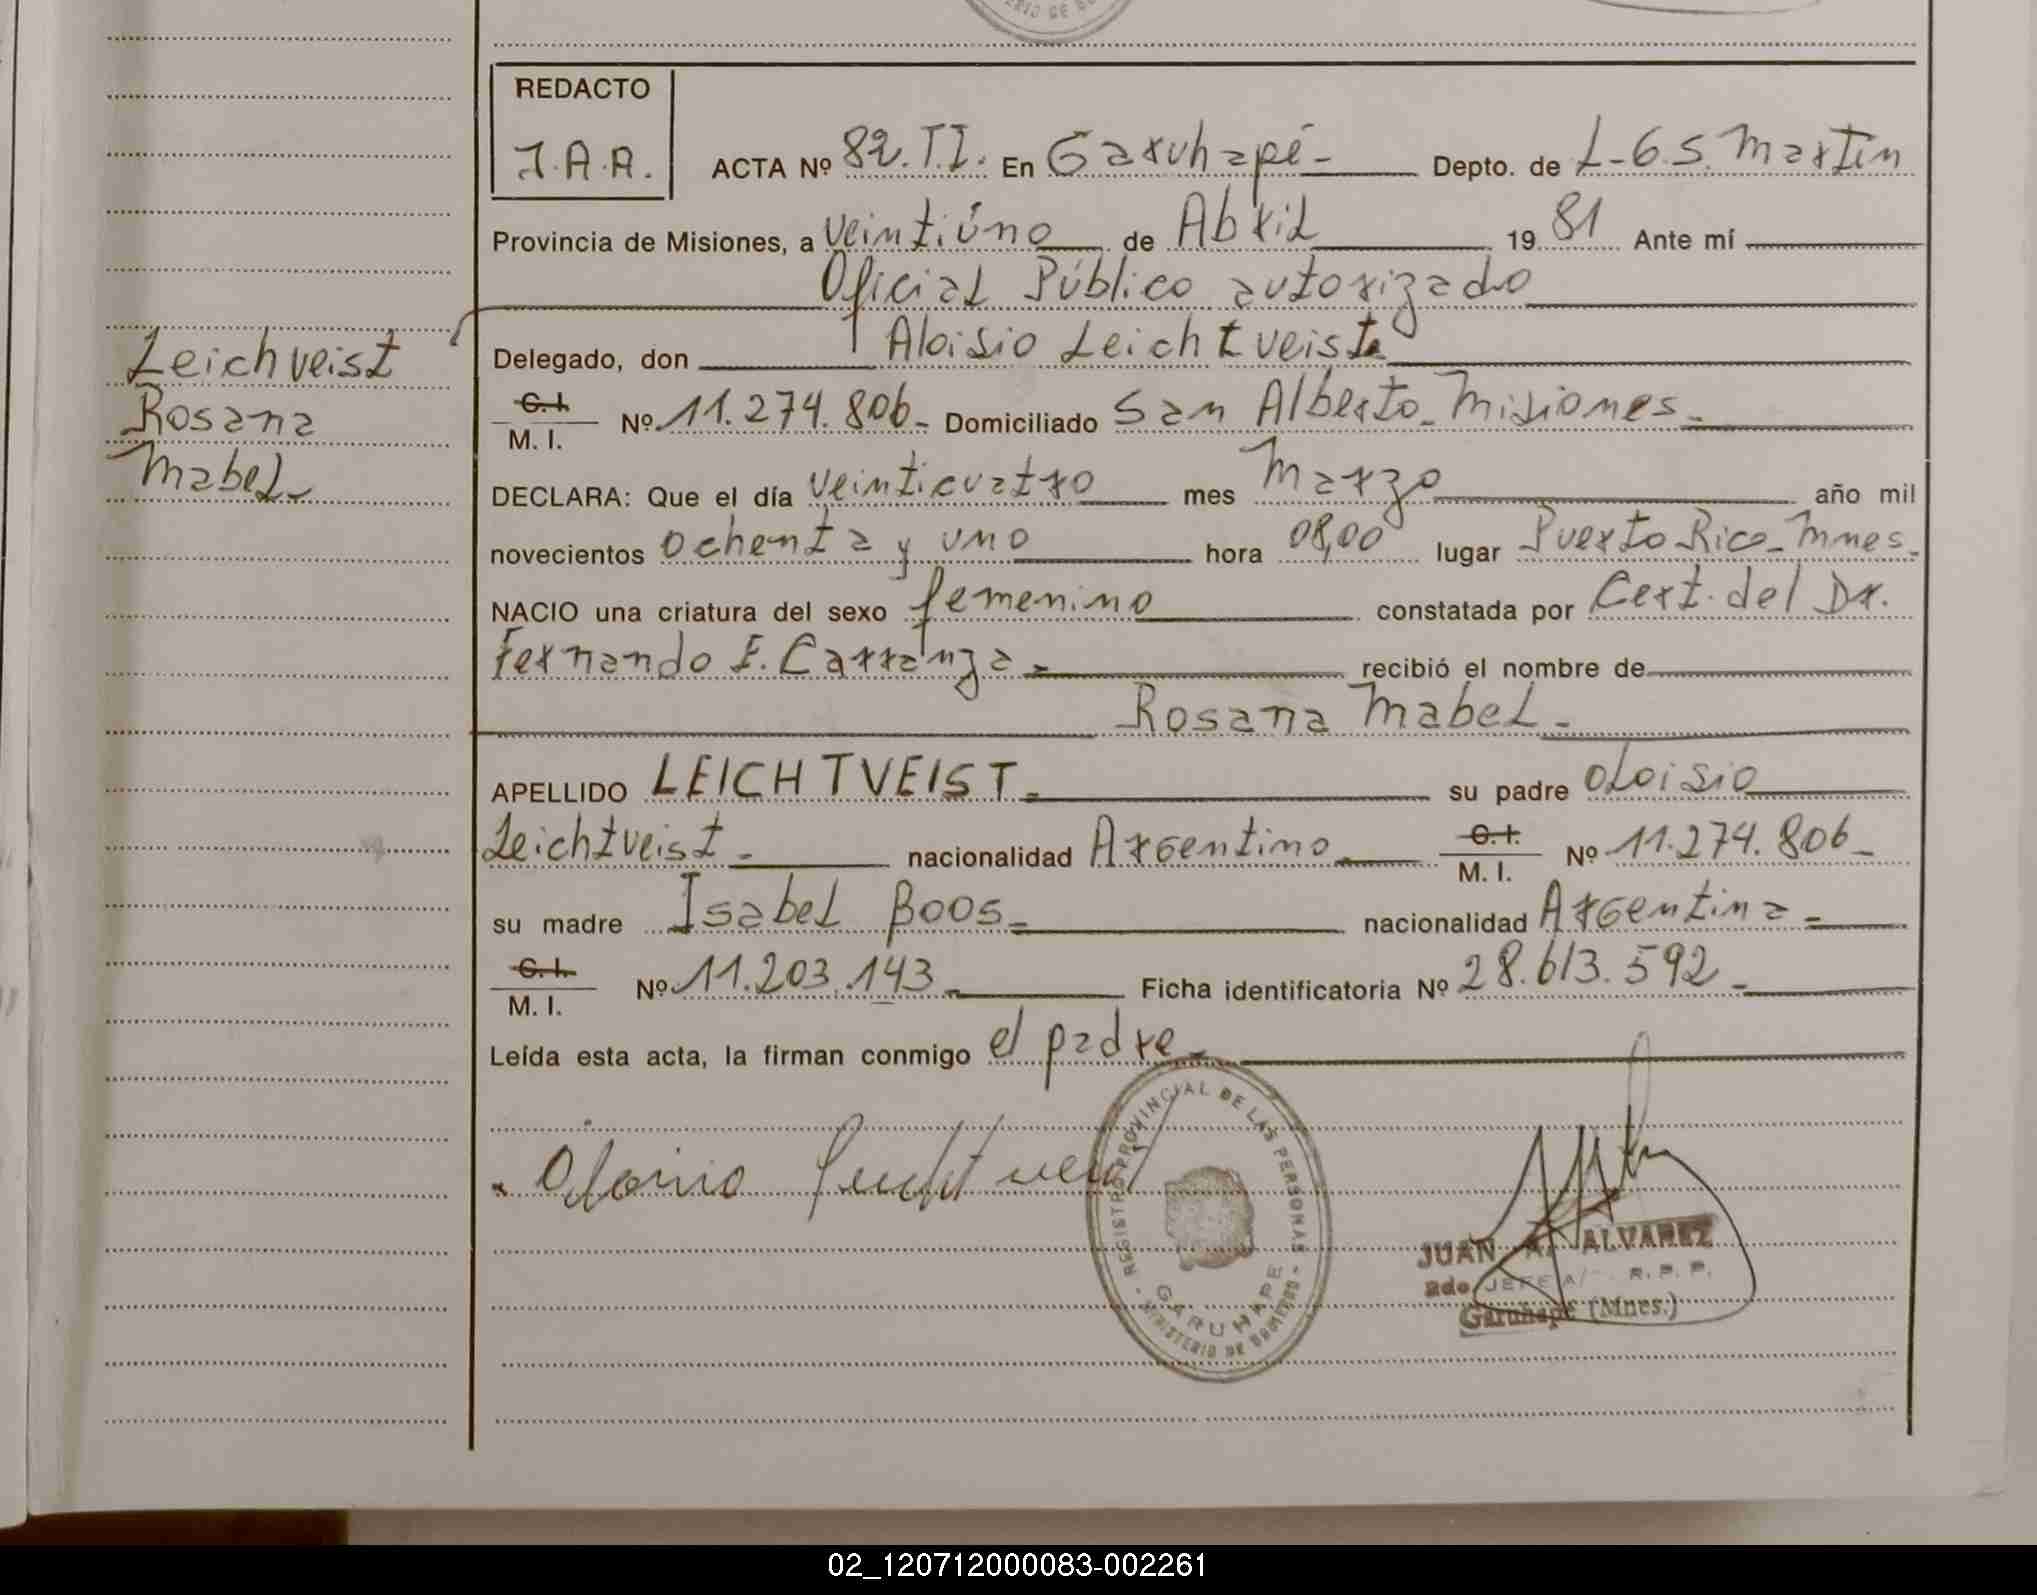 REDACTO
J.A.A. ACTA Nº 82.T.I. En Garuhapé- Depto. de L-G.S. Martín
Provincia de Misiones, a veintiúno de Abril 19 81 Ante mí
Oficial Público autorizado
Delegado, don Aloisio Leichtveist
C.I. M.I. Nº 11.274.806- Domiciliado San Alberto-Misiones-
DECLARA: Que el día veinticuatro mes Marzo año mil
novecientos ochenta y uno hora 08,00 lugar Puerto Rico-Mnes-
NACIO una criatura del sexo femenino constatada por Cert. del Dr.
Fernando E. Carranza- recibió el nombre de
Rosana Mabel-
APELLIDO LEICHTVEIST- su padre Oloisio
Leichtveist- nacionalidad Argentino C.I. M.I. Nº 11.274.806-
su madre Isabel Boos- nacionalidad Argentina-
C.I. M.I. Nº 11.203.143- Ficha identificatoria Nº 28.613.592-
Leída esta acta, la firman conmigo el padre-
Leichveist
Rosana
Mabel-
REGISTRO PROVINCIAL DE LAS PERSONAS
GARUHAPE
MINISTERIO DE GOBIERNO
JUAN A. ALVAREZ
JEFE R.P.P.
Garuhapé (Mnes.)
02_120712000083-002261